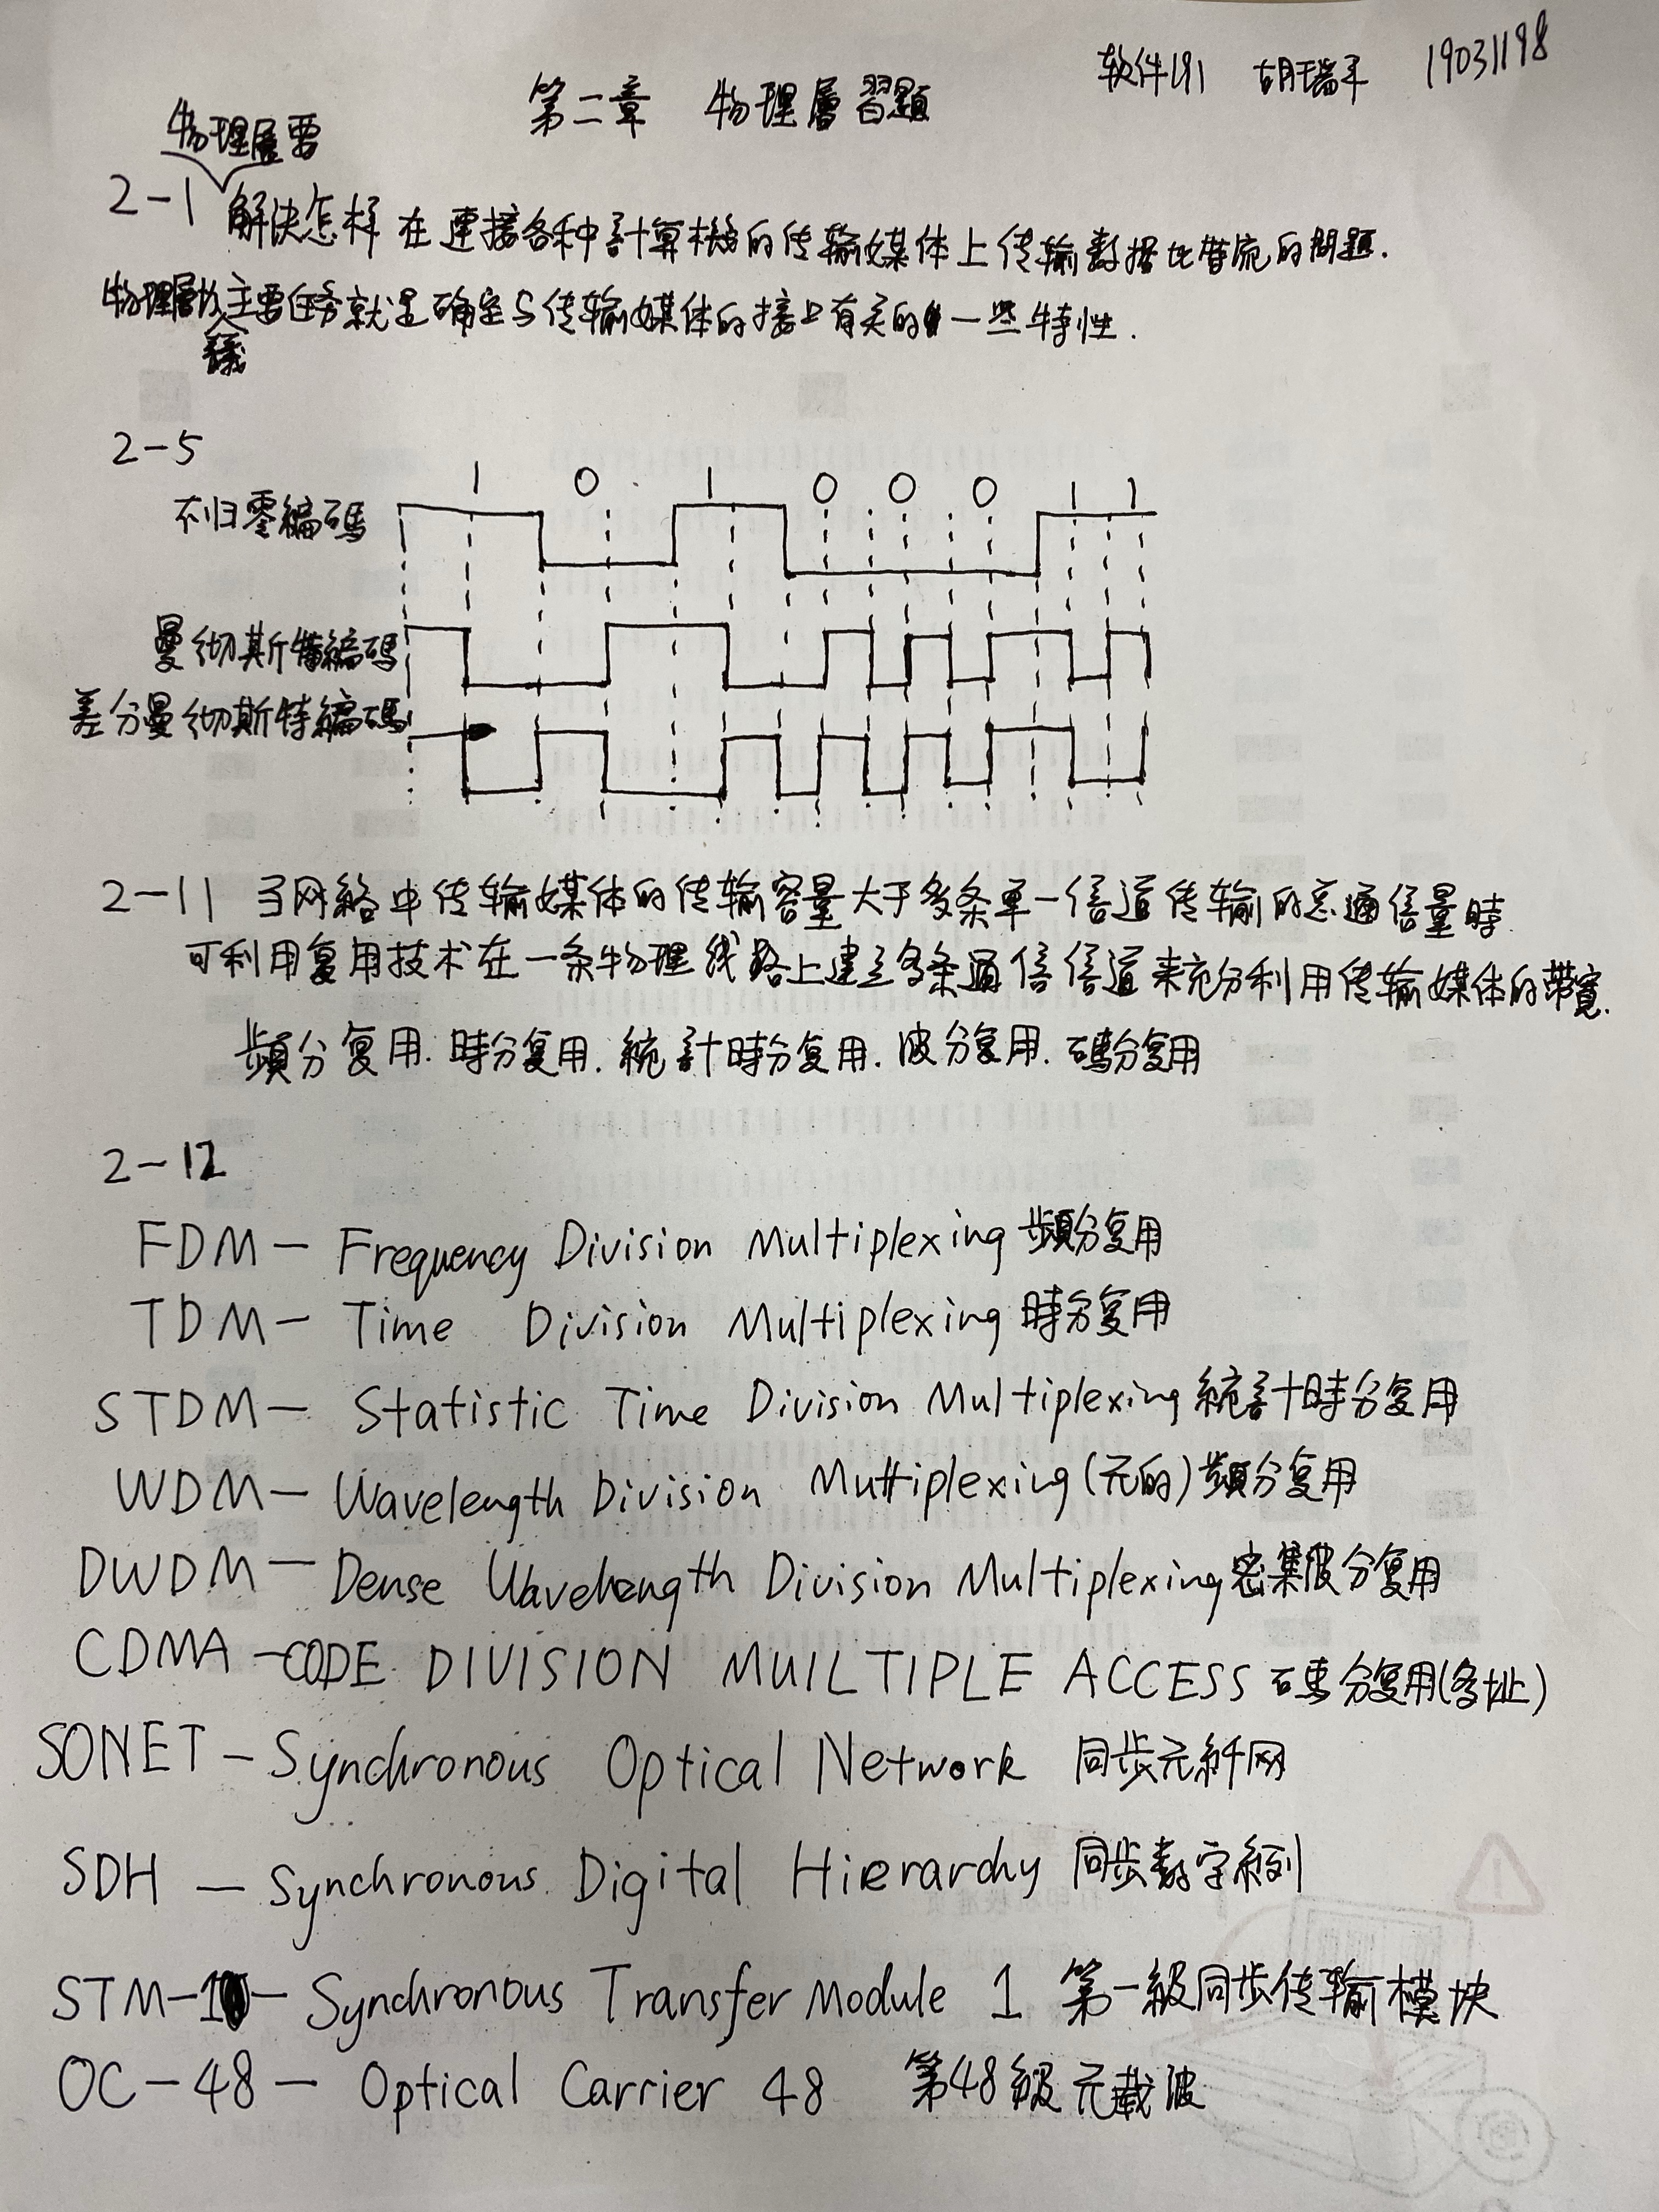 软件191 胡瑞平 19031198
第二章 物理層習題
物理層要
2-1 解決怎样在連接各种計算機的传输媒体上传输数据比特流的問題.
物理層的主要任务就是确定与传输媒体的接口有关的一些特性.
2-5
1 0 1 0 0 0 1 1
不归零編碼
曼彻斯特編碼
差分曼彻斯特編碼
2-11 当网络中传输媒体的传输容量大于多条单一信道传输的总通信量時
可利用复用技术在一条物理线路上建立多条通信信道来充分利用传输媒体的带寬.
頻分复用. 時分复用. 統計時分复用. 波分复用. 碼分复用
2-12
FDM — Frequency Division Multiplexing 頻分复用
TDM — Time Division Multiplexing 時分复用
STDM — Statistic Time Division Multiplexing 統計時分复用
WDM — Wavelength Division Multiplexing (光的) 頻分复用
DWDM — Dense Wavelength Division Multiplexing 密集波分复用
CDMA — CODE DIVISION MUILTIPLE ACCESS 碼分复用(多址)
SONET — Synchronous Optical Network 同步光纤网
SDH — Synchronous Digital Hierarchy 同步数字系列
STM-1 — Synchronous Transfer Module 1 第一級同步传输模块
OC-48 — Optical Carrier 48 第48級光载波